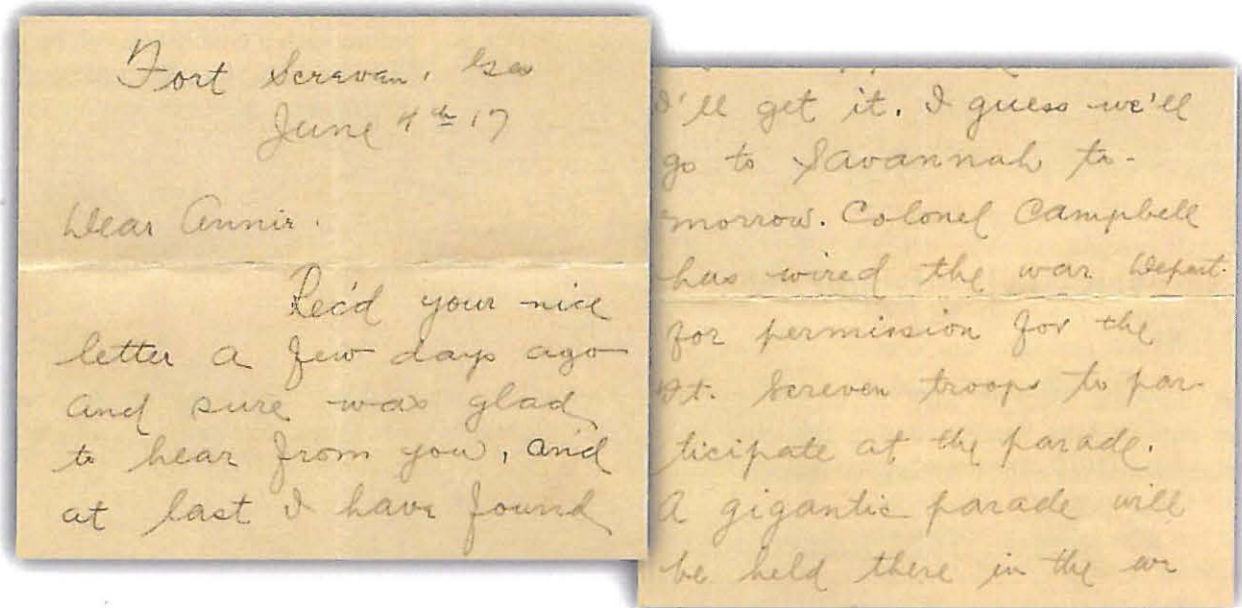 Fort Screven, Ga
June 4th 17
Dear Annie.
Rec'd your nice
letter a few days ago
and sure was glad
to hear from you, and
at last I have found
I'll get it. I guess we'll
go to Savannah to-
morrow. Colonel Campbell
has wired the war Depart.
for permission for the
Ft. Screven troops to par-
ticipate at the parade.
A gigantic parade will
be held there in the